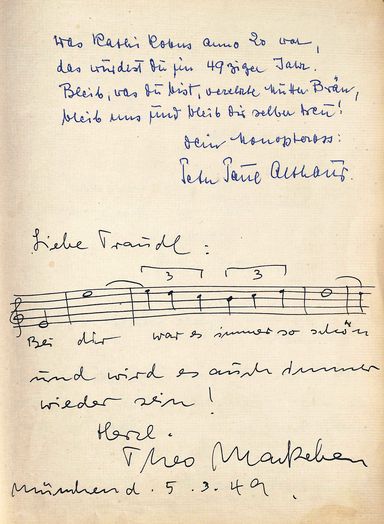 Was Kathi Kobus anno 20 war,
das würdest Du im 49ziger Jahr.
Bleib, was du bist, verehrte Mutter Bräu,
bleib uns und bleib dir selber treu!
Dein
Peter Paul Althaus.
Liebe Traudl:
3 3
Bei dir war es immer so schön
und wird es auch immer
wieder sein!
Herzl.
Theo Mackeben
München d. 5.3.49.